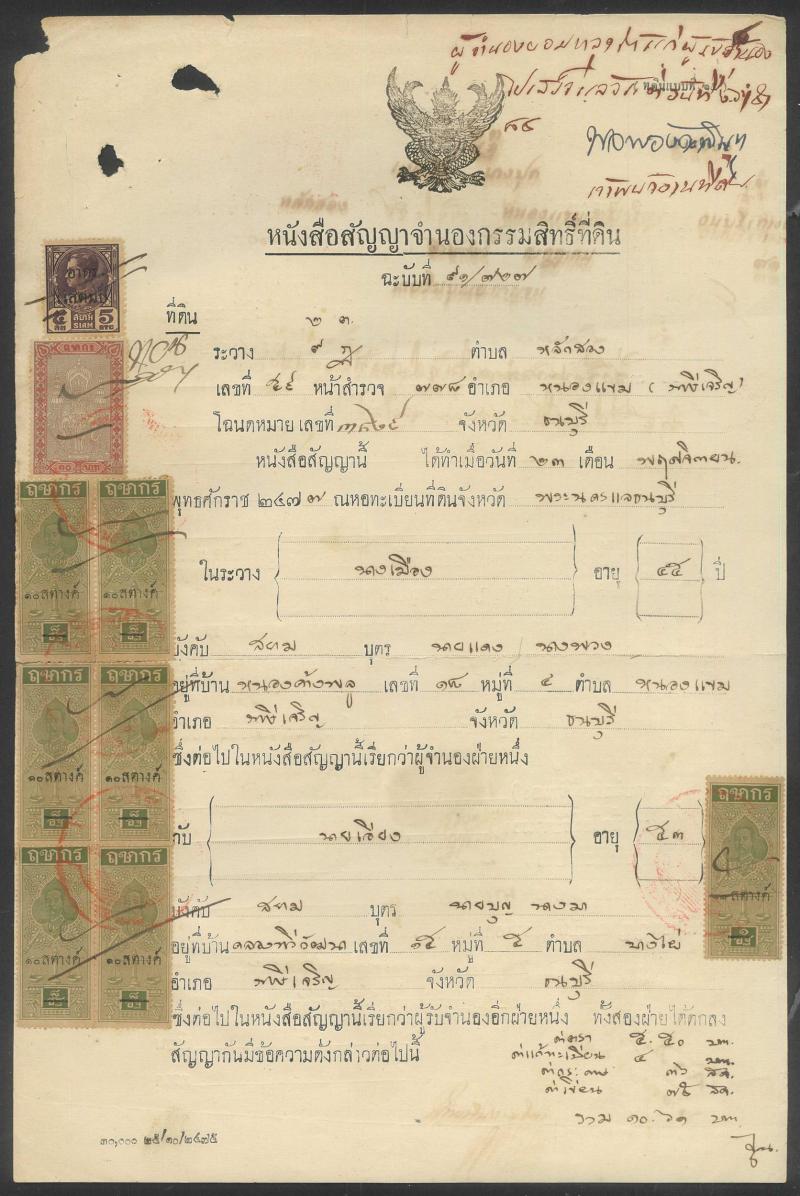 หนังสือสัญญาจำนองกรรมสิทธิ์ที่ดิน
ฉะบับที่ ๔๑/๗๒๗
อากร
แสตมป์
๕ สต สยาม SIAM 5 STG
ที่ดิน
๒ ต.
ระวาง ตำบล หลักสอง
เลขที่ ๔๔ หน้าสำรวจ ๗๗๘ อำเภอ หนองแขม (ภาษีเจริญ)
โฉนดหมายเลขที่ จังหวัด ธนบุรี
หนังสือสัญญานี้ ได้ทำเมื่อวันที่ ๒๓ เดือน พฤศจิกายน.
พุทธศักราช ๒๔๗๗ ณหอทะเบียนที่ดินจังหวัด พระนครแลธนบุรี
ในระวาง นางเมือง อายุ ๔๕ ปี
บังคับ สยาม บุตร นายแดง นางพวง
อยู่ที่บ้าน หนองค้างพลู เลขที่ ๑๘ หมู่ที่ ๔ ตำบล หนองแขม
อำเภอ ภาษีเจริญ จังหวัด ธนบุรี
ซึ่งต่อไปในหนังสือสัญญานี้เรียกว่าผู้จำนองฝ่ายหนึ่ง
กับ นายเจียง อายุ ๕๓
บังคับ สยาม บุตร นายบุญ นางมา
อยู่ที่บ้าน เลขที่ ๑๕ หมู่ที่ ๕ ตำบล บางไผ่
อำเภอ ภาษีเจริญ จังหวัด ธนบุรี
ซึ่งต่อไปในหนังสือสัญญานี้เรียกว่าผู้รับจำนองอีกฝ่ายหนึ่ง ทั้งสองฝ่ายได้ตกลง
สัญญากันมีข้อความดังกล่าวต่อไปนี้
ค่าตรา ๕.๕๐ บาท
ค่าแก้ทะเบียน ๔ บาท
ค่าเขียน ๗๕ สต.
รวม ๑๐.๖๑ บาท
๓๐,๐๐๐ ๒๕/๑๐/๒๔๗๕
อากร
๑๐ บาท
ฤชากร
ฤชากร
๑๐สตางค์
๑๐สตางค์
ฤชากร
ฤชากร
๑๐สตางค์
๑๐สตางค์
ฤชากร
ฤชากร
๑๐สตางค์
๑๐สตางค์
ฤชากร
สตางค์